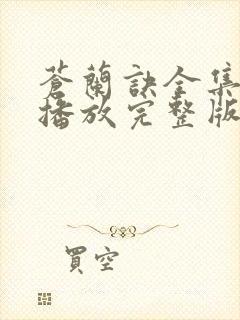 蒼蘭訣全集
播放完整版
買空